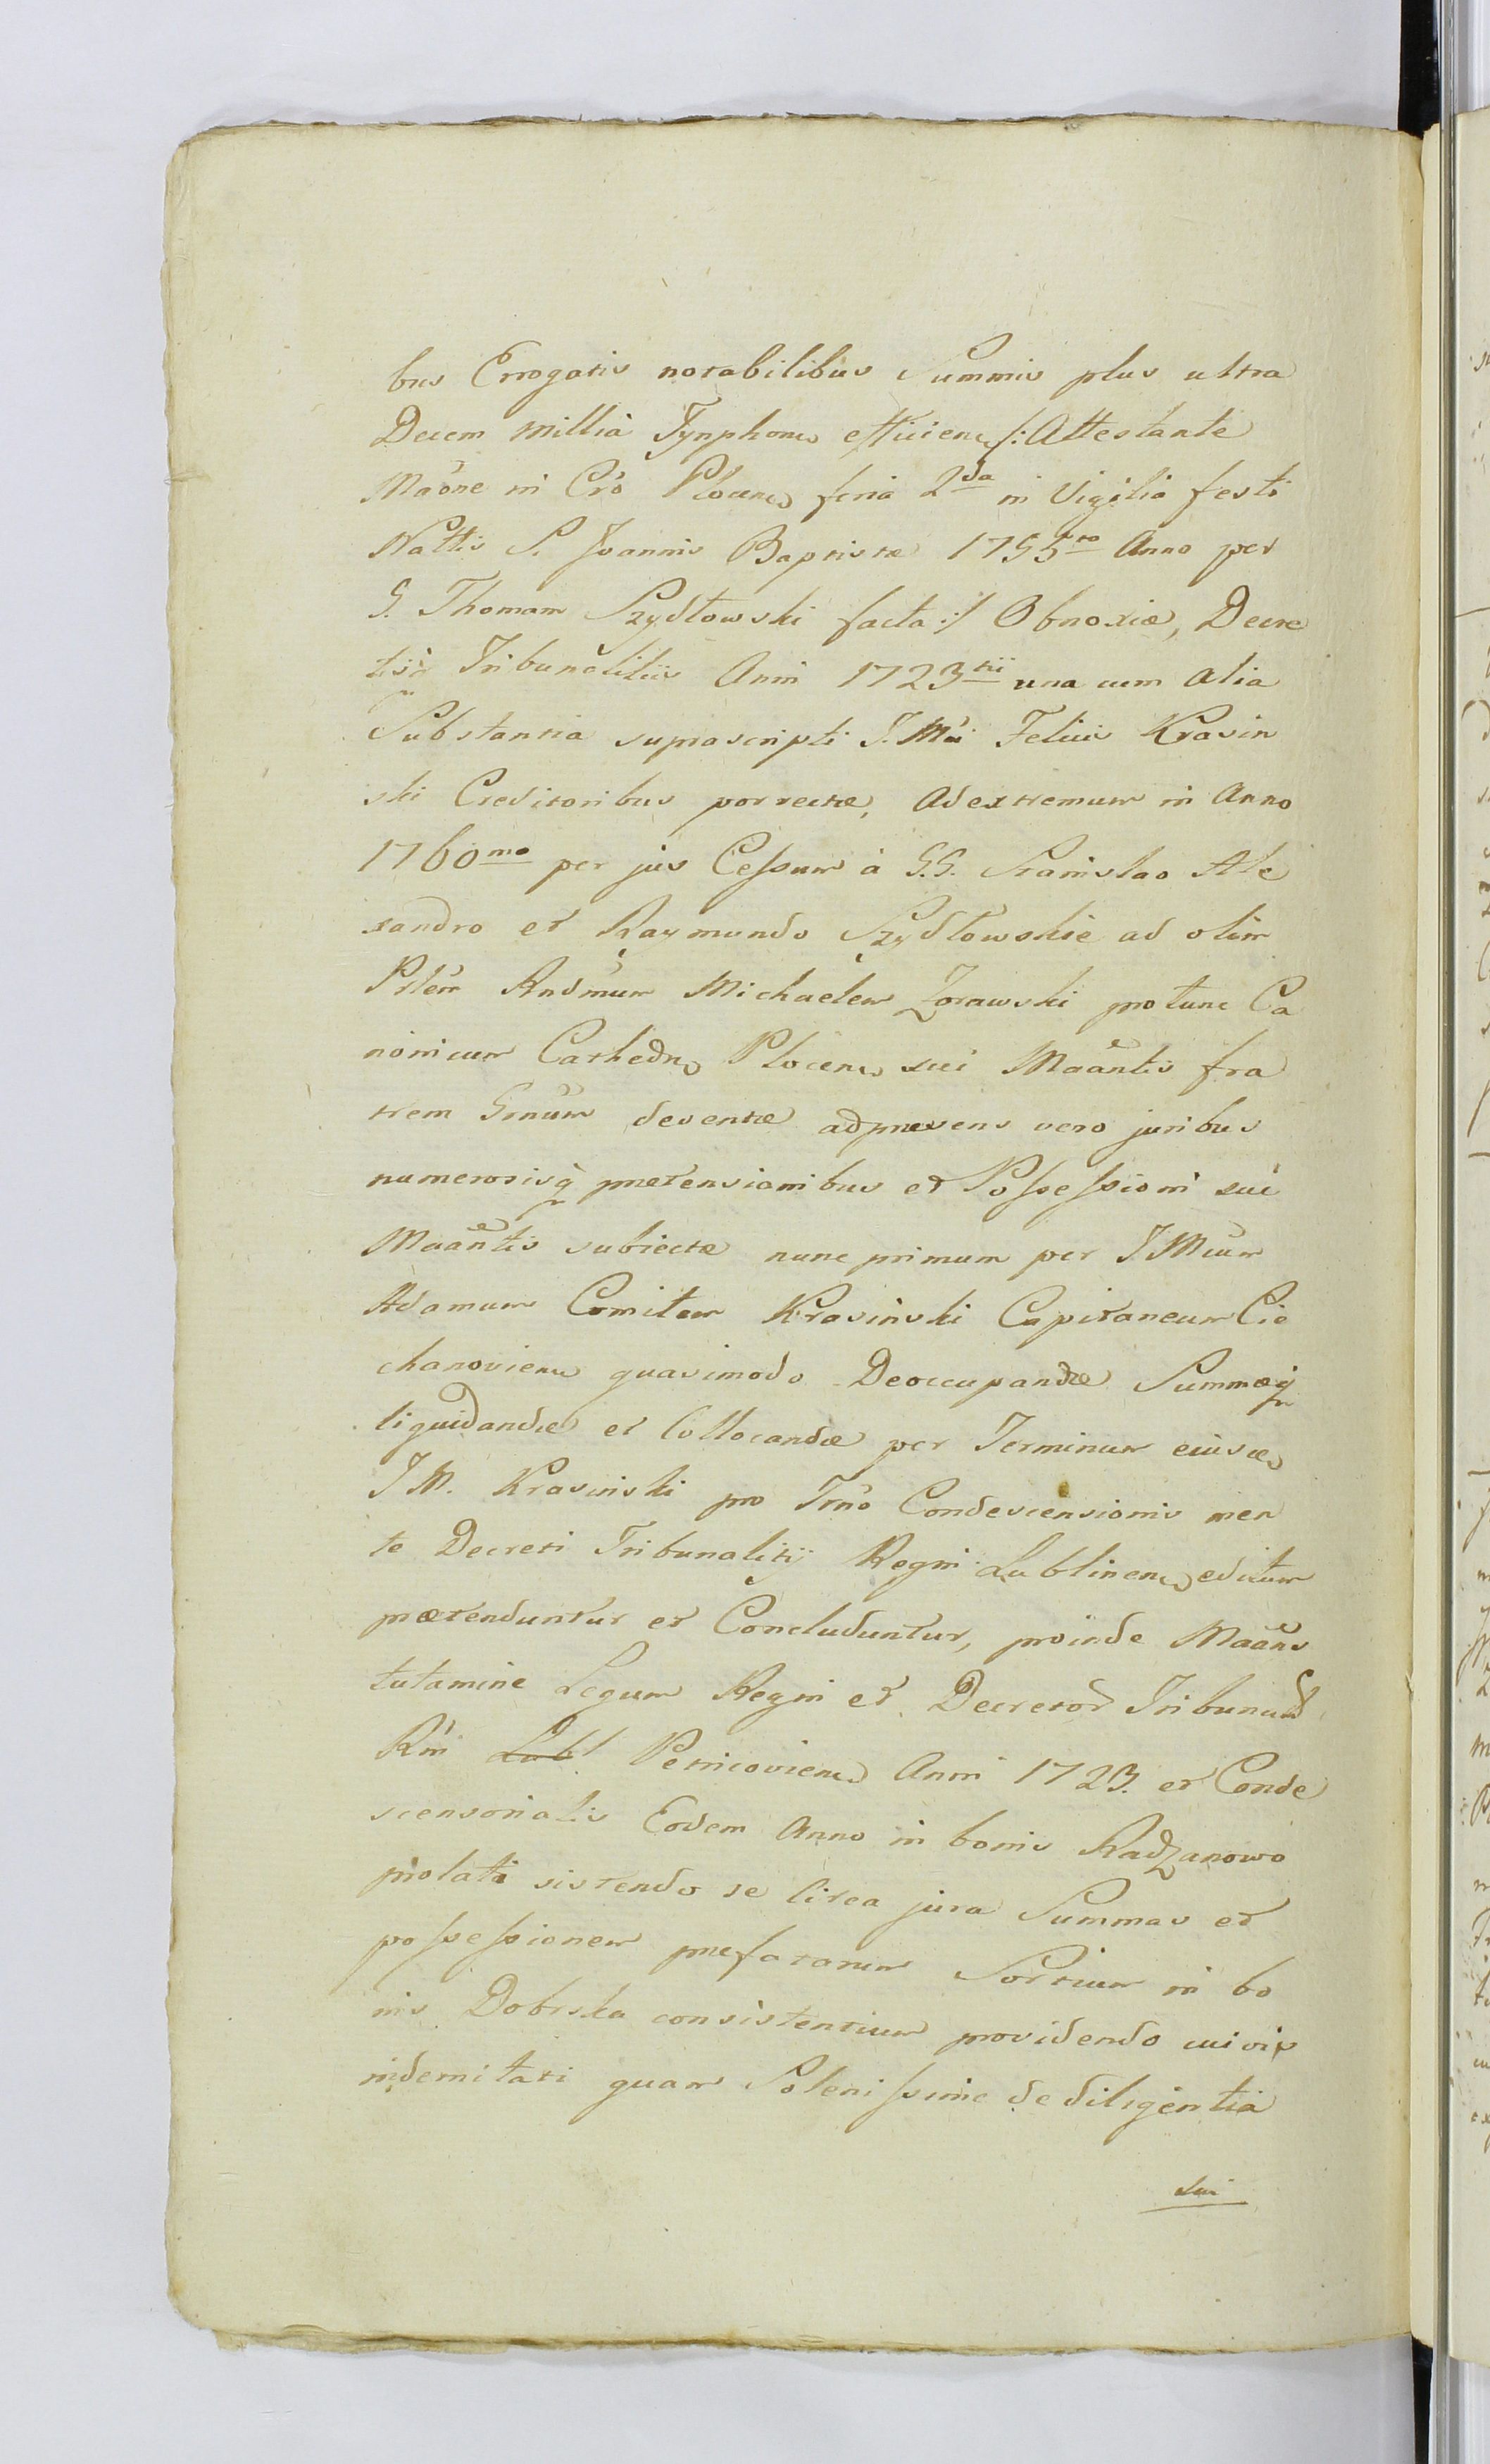 bus Errogatis notabilibus Summis plus ultra
Decem millia Tynphones efficien /: Attestante
Maõne in Cro Plocen feria 2da in Vigilia festi
Nattis S. Joannis Baptistæ 1755to Anno per
G. Thomam Szydłowski facta :/ Obnoxiæ, Decre
tisq Tribunalitiis Anni 1723tii una cum alia
Substantia suprascripti J. Mci Felicis Krasin
ski Creditoribus porrectæ, Ad extremum in Anno
1760mo per jus Cessum à G.G. Stanislao Ale
xandro et Raymundo Szydłowskie ad olim
Prlem Rndmum Michaelem Zorawski pro tunc Ca
nonicum Cathedr Plocen sui Maantis fra
trem Grnum deventæ ad præsens vero juribus
numerosisq prætensionibus et Possessioni sui
Maantis subiectæ nunc primum per J Mcum
Adamum Comitem Krasinski Capitaneum Cie
chanovien quasimodo Deoccupandæ Summæq
liquidandæ et Collocandæ per Terminum eiusd
J M. Krasinski pro Trno Condescensionis men
te Decreti Tribunalitij Regni Lublinen editum
prætenduntur et Concluduntur, proinde Maans
tutamine Legum Regni et Decretor Tribunal
Rni Lubl Petricovien Anni 1723. et Conde
scensorialis Eodem Anno in bonis Radzanowo
prolati sistendo se Circa jura Summas et
possessionem præfatarum Sortium in bo
nis Dobrska consistentium providendo cuivis
indemnitati quam Solenissime de diligentia
sui